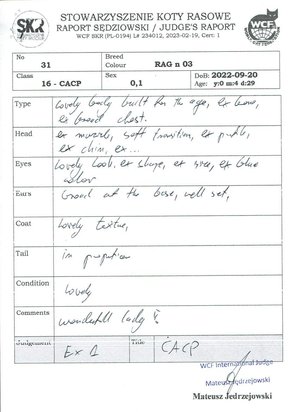 STOWARZYSZENIE KOTY RASOWE
RAPORT SĘDZIOWSKI / JUDGE'S REPORT
WCF SKR (PL-0194) L# 234012, 2023-02-19, Cert: 1
SKR
WCF
No
31
Breed
Colour
RAG n 03
Class
16 - CACP
Sex
0,1
DoB: 2022-09-20
Age: y:0 m:4 d:29
Type
Lovely body built for the age, ex bone,
ex broad chest.
Head
ex muzzle, soft transition, ex profile,
ex chin, ex ...
Eyes
Lovely look, ex shape, ex size, ex blue
color
Ears
broad at the base, well set,
Coat
Lovely texture,
Tail
in proportion
Condition
Lovely
Comments
wonderfull lady !
Judgement
Ex 1
Title
CACP
WCF International Judge
Mateusz Jędrzejowski
Mateusz Jędrzejowski